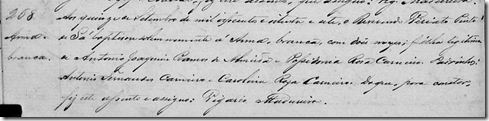 208. Aos quinze de Setembro de mil oitocentos e oitenta e sete, o Reverendo
Anna Sá baptisou solemnemente á Anna, branca, com dois mezes; filha legitima
branca. de Antonio Joaquim Ramos de Almeida e Rosa Carneiro. Padrinhos:
Antonio Fernandes Carneiro e Carolina Rosa Carneiro. Do que, para constar,
fiz este assento e assigno: Vigario Madureira.